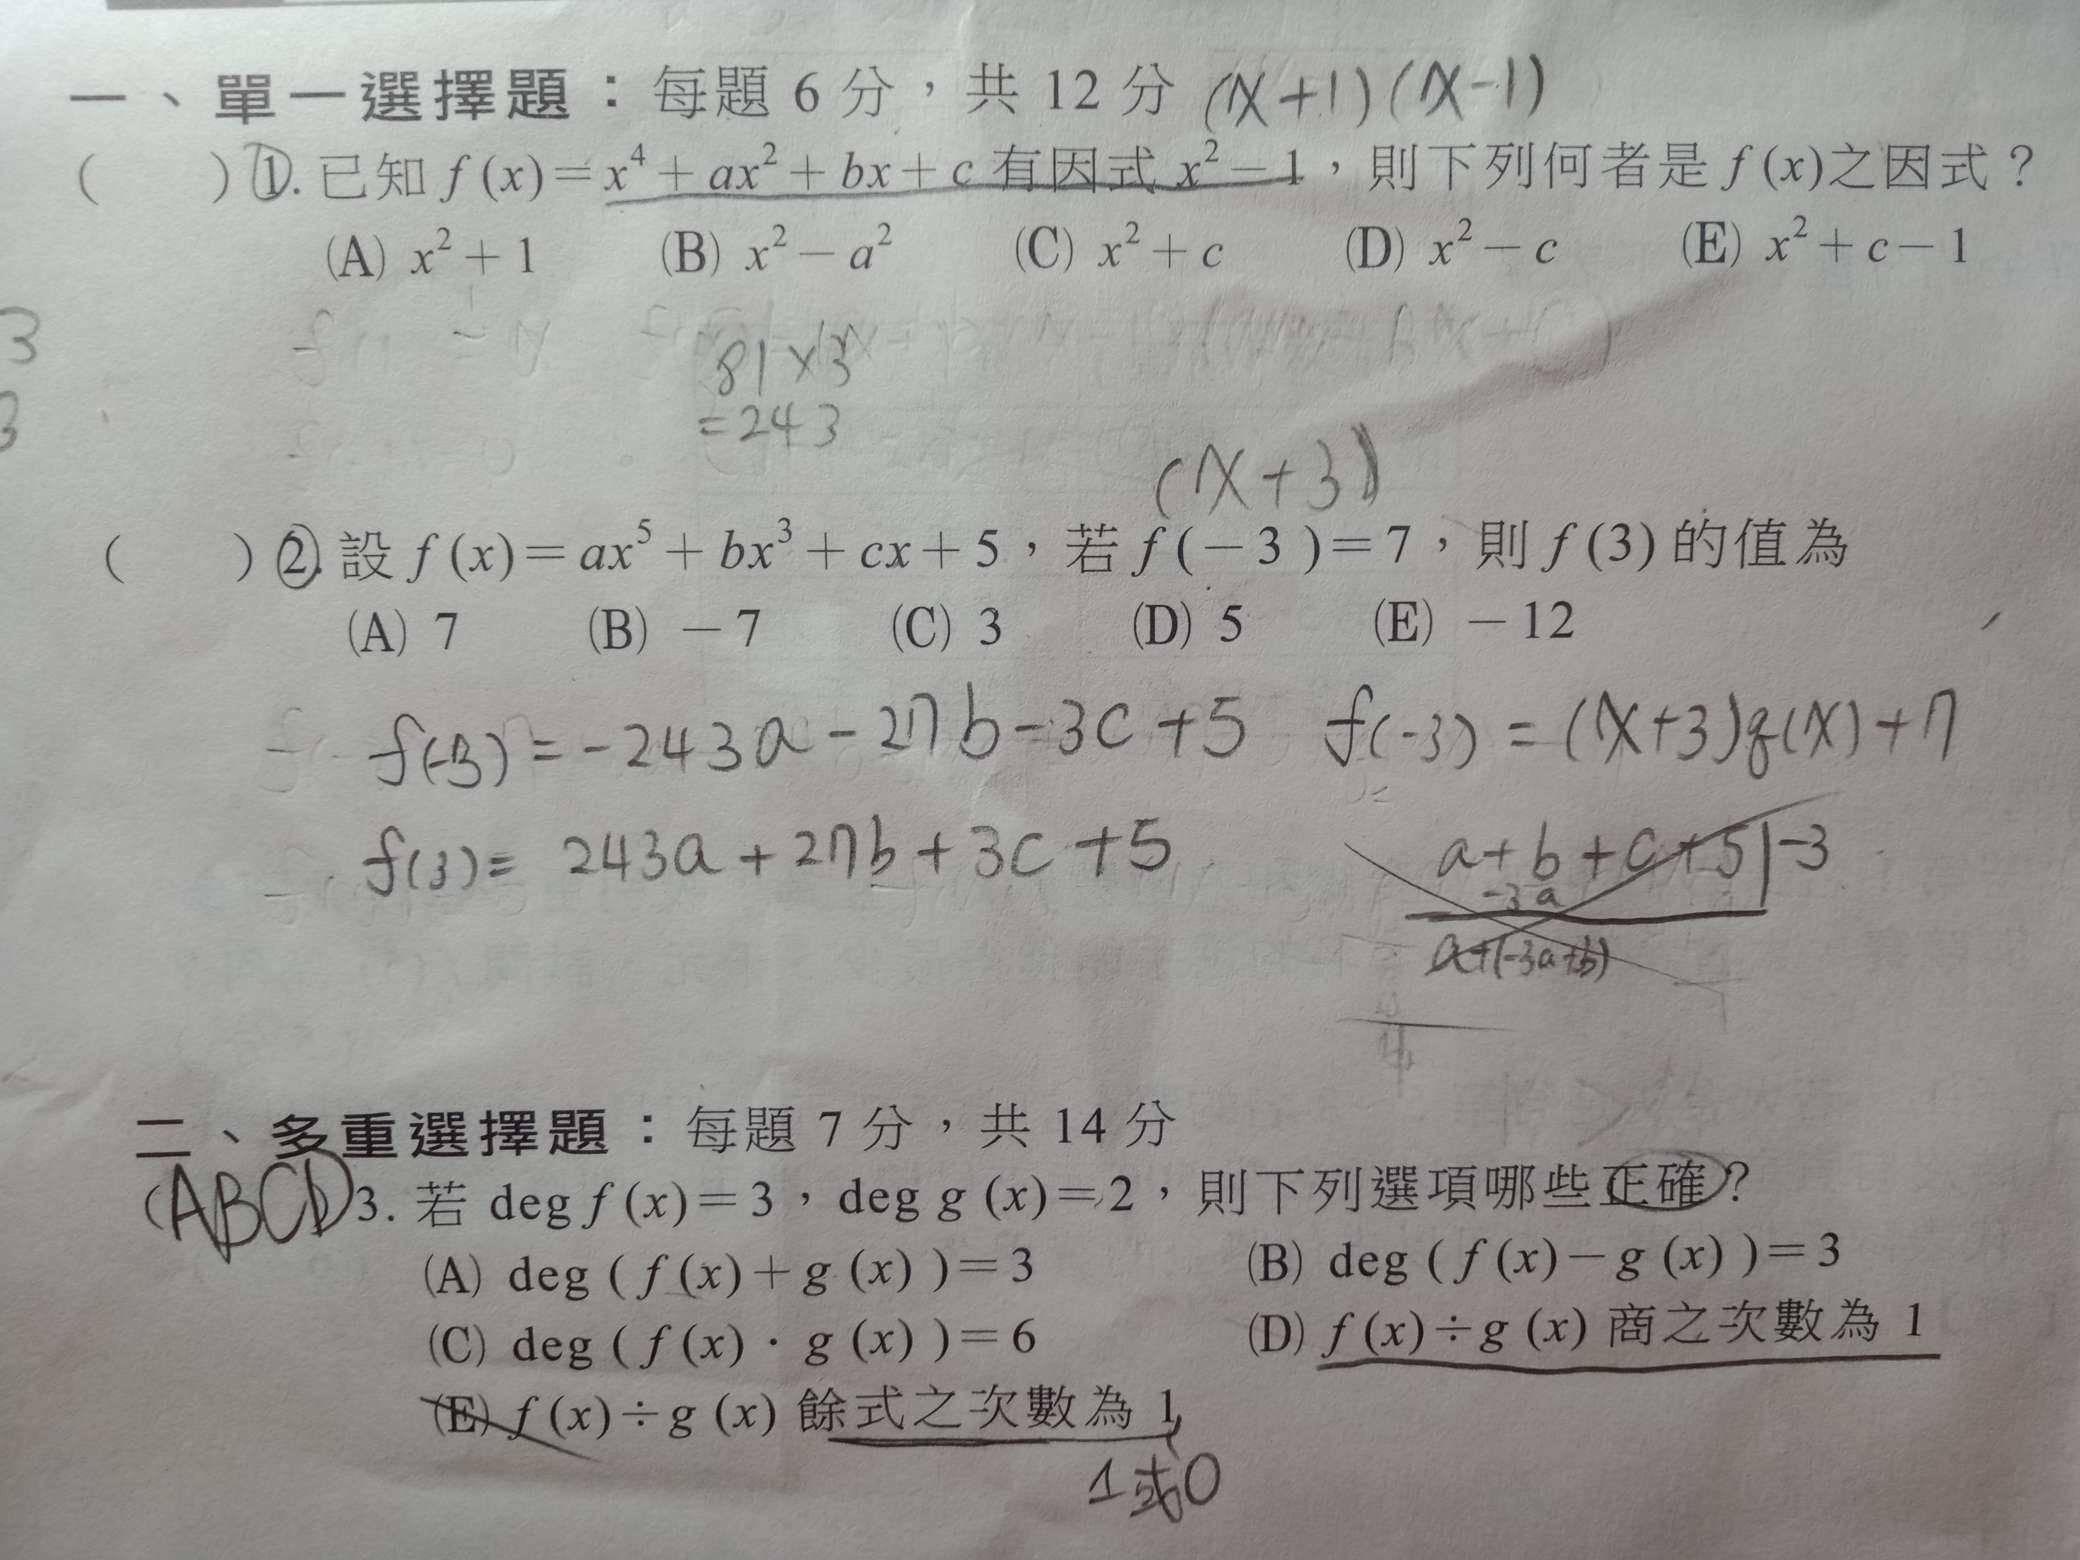 一、單一選擇題：每題 6 分，共 12 分 (x+1)(x-1)
( ) 1. 已知 f (x)=x⁴+ax²+bx+c 有因式 x²-1，則下列何者是 f (x)之因式？
(A) x²+1 (B) x²-a² (C) x²+c (D) x²-c (E) x²+c-1
3
81×3
3
=243
(x+3)
( ) 2. 設 f (x)=ax⁵+bx³+cx+5，若 f (-3)=7，則 f (3) 的值為
(A) 7 (B) -7 (C) 3 (D) 5 (E) -12
f(-3)=-243a-27b-3c+5 f(-3)=(x+3)q(x)+7
f(3)=243a+27b+3c+5
a+b+c+5|-3
-3a
a+(-3a+b)
二、多重選擇題：每題 7 分，共 14 分
(ABCD) 3. 若 deg f (x)=3，deg g (x)=2，則下列選項哪些正確？
(A) deg ( f (x)+g (x) )=3 (B) deg ( f (x)-g (x) )=3
(C) deg ( f (x)．g (x) )=6 (D) f (x)÷g (x) 商之次數為 1
(E) f (x)÷g (x) 餘式之次數為 1
1或0